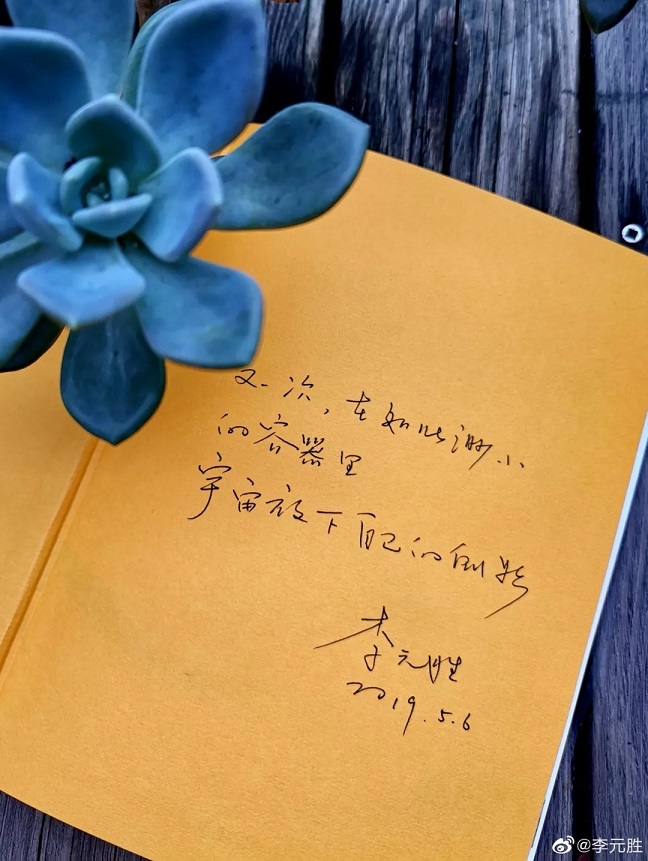 又一次,在如此渺小
的容器里
宇宙放下自己的倒影
李元胜
2019.5.6
@李元胜